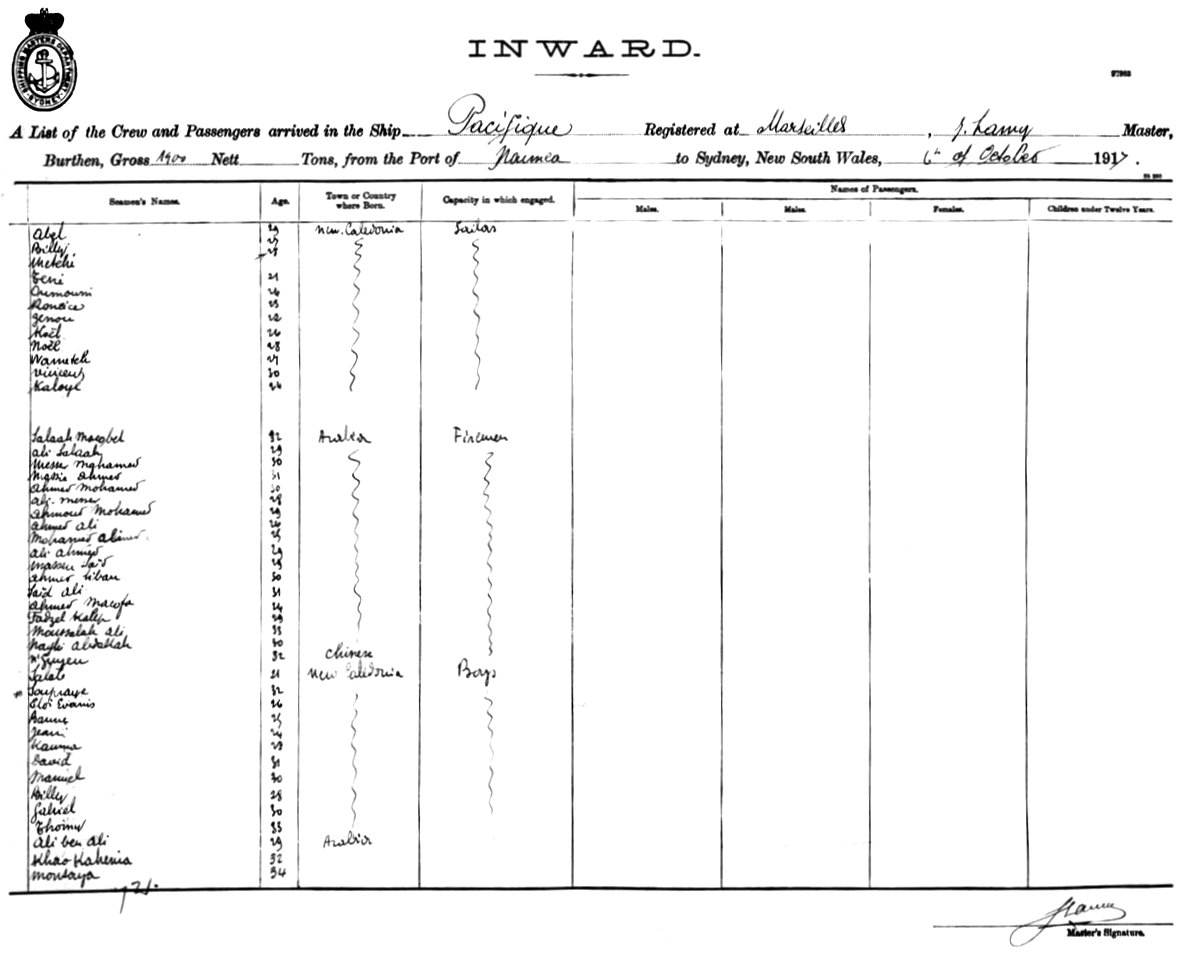 SHIPPING MASTERS DEPARTMENT SYDNEY
INWARD.
A List of the Crew and Passengers arrived in the Ship Pacifique Registered at Marseilles, J. Lamy Master,
Burthen, Gross 1900 Nett Tons, from the Port of Noumea to Sydney, New South Wales, 6th of October 1917.
Names of Passengers.
Seamen's Names. Age. Town or Country where Born. Capacity in which engaged. Males. Males. Females. Children under Twelve Years.
Abel 29 New Caledonia Sailor
Billy
Metchi
21
26
25
Genou 22
Koël 26
Noël 28
Wametch 27
Vincent 30
Kaloye 26
Salaah Macobel 32 Arabia Firemen
Ali Salaah 29
Messer Mohamed 30
Ahmed 31
Ahmed Mohamed 30
Ali 28
Ahmed Mohamed 29
Ahmed Ali 26
Mohamed Ahmed 25
Ali Ahmed 29
Said 29
Ahmed Liban 30
Saïd Ali 31
Ahmed Macofa 24
Fadzel Kalep 29
Moussalah Ali
Nagli Abdallah 30
N'Guyen 32 Chinese
21 New Caledonia Boys
Soupraye 32
Eloi Evanis 26
25
24
Kauma 29
David 31
Manuel 30
Billy 28
Gabriel 30
33
Ali ben Ali 29 Arabia
Khao Kahenia 32
Montaya 34
Master's Signature.